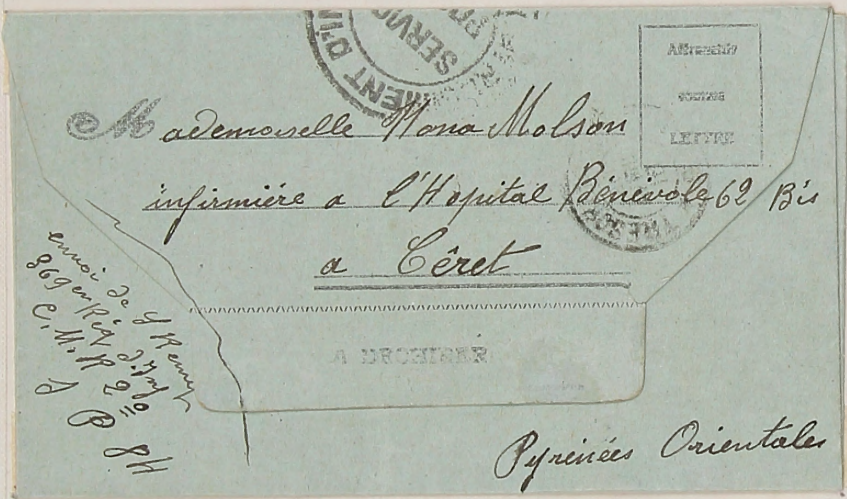 MENT D'IN
SERVIC
Affranchir
comme
LETTRE
Mademoiselle Nona Molson
infirmière a l'Hopital Bénévole 62 Bis
TRESOR
a Céret
A DECHIRER
Pyrénées Orientales
envoi de S Remy
369 em Rég d'Inf
C.M.R 2
S P 84